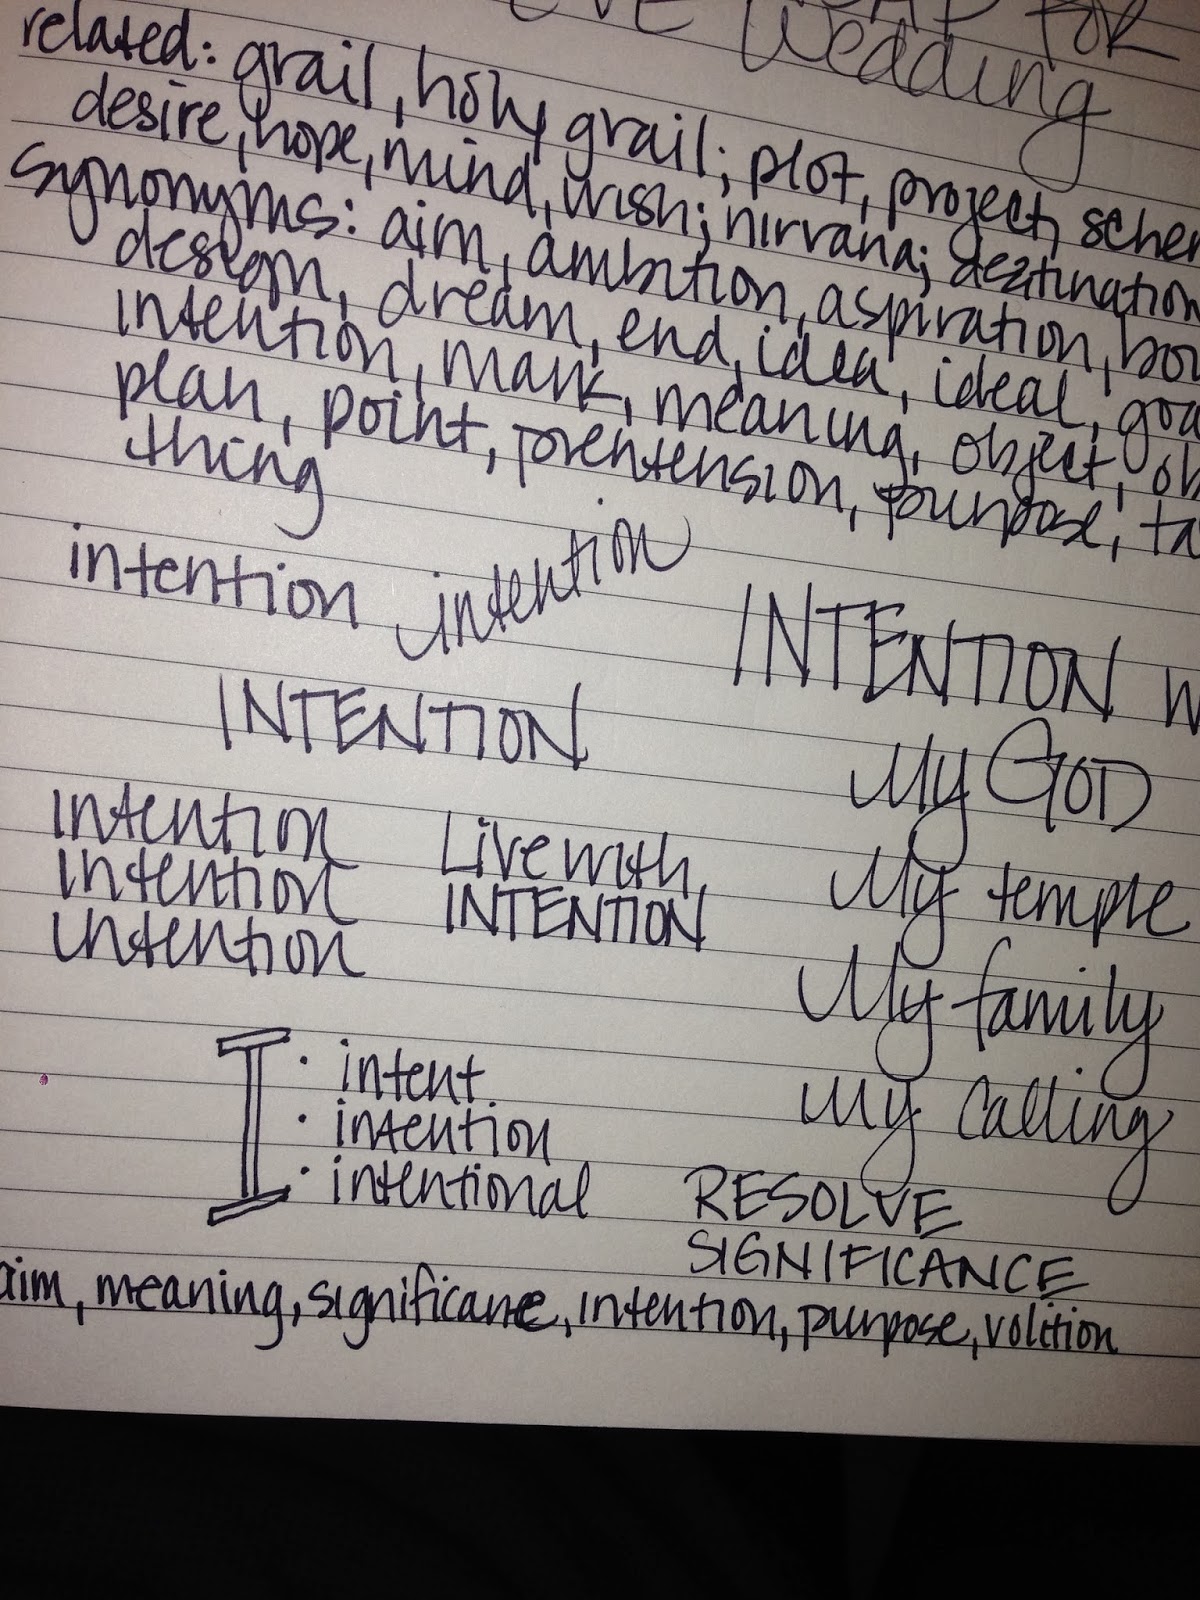 FOR
Wedding
related: grail, holy grail; plot, project, schem
desire, hope, mind, wish; nirvana; destination
synonyms: aim, ambition, aspiration, bou
design, dream, end, idea, ideal, goa
intention, mark, meaning, object, ob
plan, point, pretension, purpose, ta
thing
intention intention
INTENTION W
INTENTION
My GOD
Intention
Intention
Intention
Live with
INTENTION
My temple
My family
My calling
I
· intent
· intention
· intentional
RESOLVE
SIGNIFICANCE
aim, meaning, significance, intention, purpose, volition